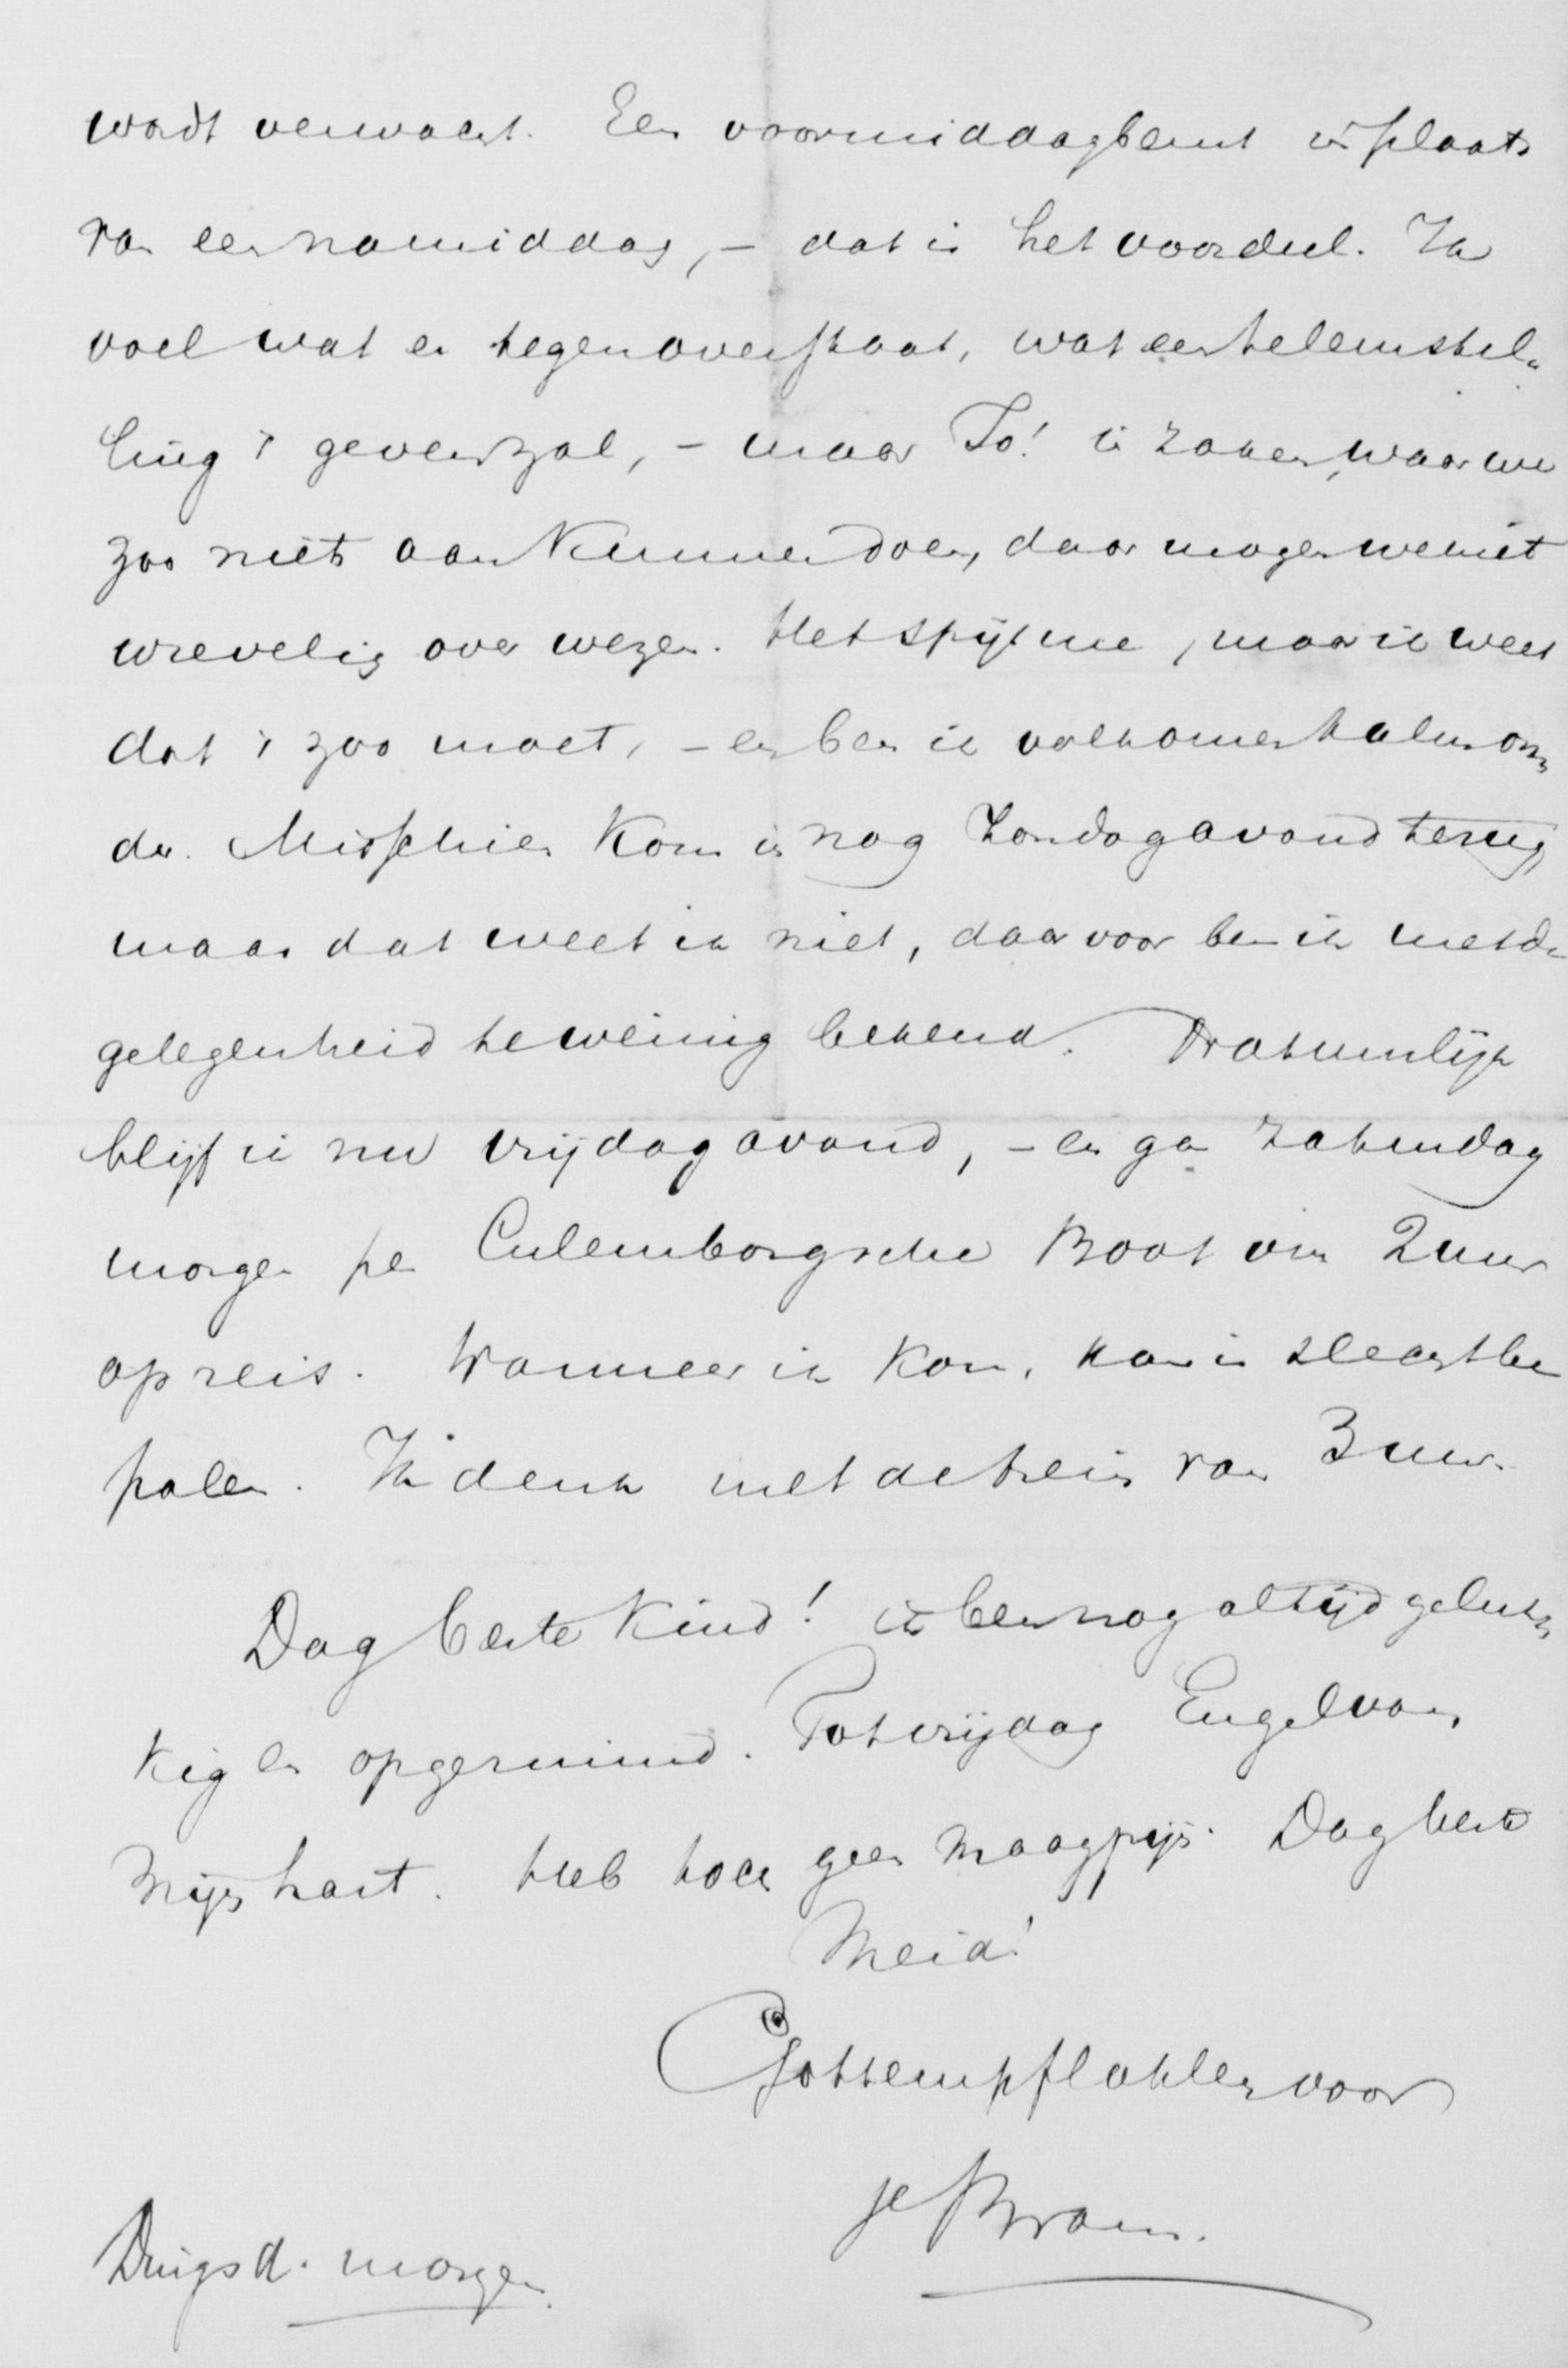 wordt verwacht. Een voormiddagbeurt in plaats
van een namiddag, – dat is het voordeel. Ik
voel wat er tegenoverstaat, wat een teleurstel„
ling 't geven zal, – maar Jo! in zaken, waar we
zoo niets aan kunnen doen, daar mogen we niet
wrevelig over wezen. Het spijt me, maar ik weet
dat 't zoo moet, – en ben ik volkomen kalm on„
der. Misschien kom ik nog Zondagavond terug,
maar dat weet ik niet, daarvoor ben ik met de
gelegenheid te weinig bekend. Natuurlijk
blijf ik nu vrijdagavond, – en ga Zaturdag
morgen per Culemborgsche Boot om 2 uur
op reis. Wanneer ik kom, kan ik slecht be
palen. Ik denk met de trein van 3 uur.
Dag beste Kind! ik ben nog altijd geluk„
kig en opgeruimd. Tot vrijdag Engel van
Mijn hart. Heb toch geen Maagpijn. Dag beste
Meid!
voor
je Bram.
Dingsd. morgen.